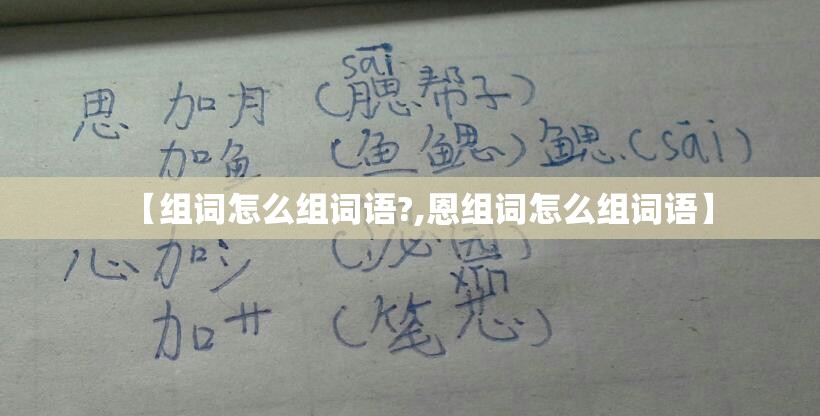 sāi
思 加月 (腮帮子)
加鱼 (鱼鳃) 鳃.(sāi)
【组词怎么组词语?,恩组词怎么组词语】
心 加氵 (沁园)
xīn
加艹 (笔芯)